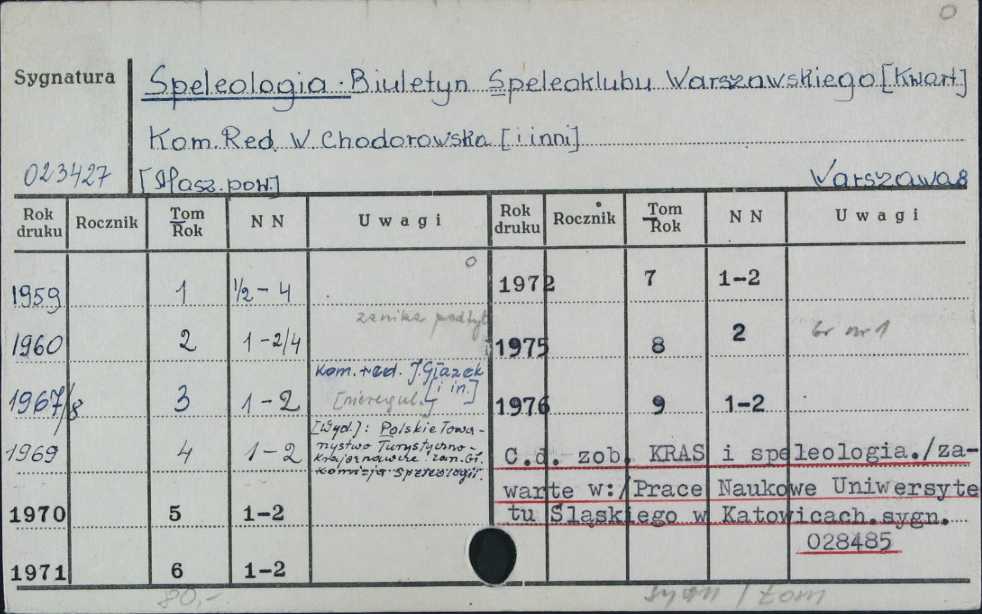 0
Sygnatura
Speleologia. Biuletyn Speleoklubu Warszawskiego [Kwart]
Kom. Red. W. Chodorowska [i inni]
023427 [Masz. pow.] Warszawa
Rok druku Rocznik Tom Rok NN Uwagi Rok druku Rocznik Tom Rok NN Uwagi
1959 1 ½-4 0 1972 7 1-2
zanika podtyt
1960 2 1-2/4 1975 8 2 br nr 1
Kom. red. J. Głazek [i in.]
1967/8 3 1-2 [nieregul.] 1976 9 1-2
[Wyd.]: Polskie Towa-
rzystwo Turystyczno-
Krajoznawcze. Zarz. Gł.
Komisja Speleologii.
1969 4 1-2
C.d. zob. KRAS i speleologia./za-
warte w:/Prace Naukowe Uniwersyte
tu Śląskiego w Katowicach.sygn.
028485
1970 5 1-2
1971 6 1-2
80,-